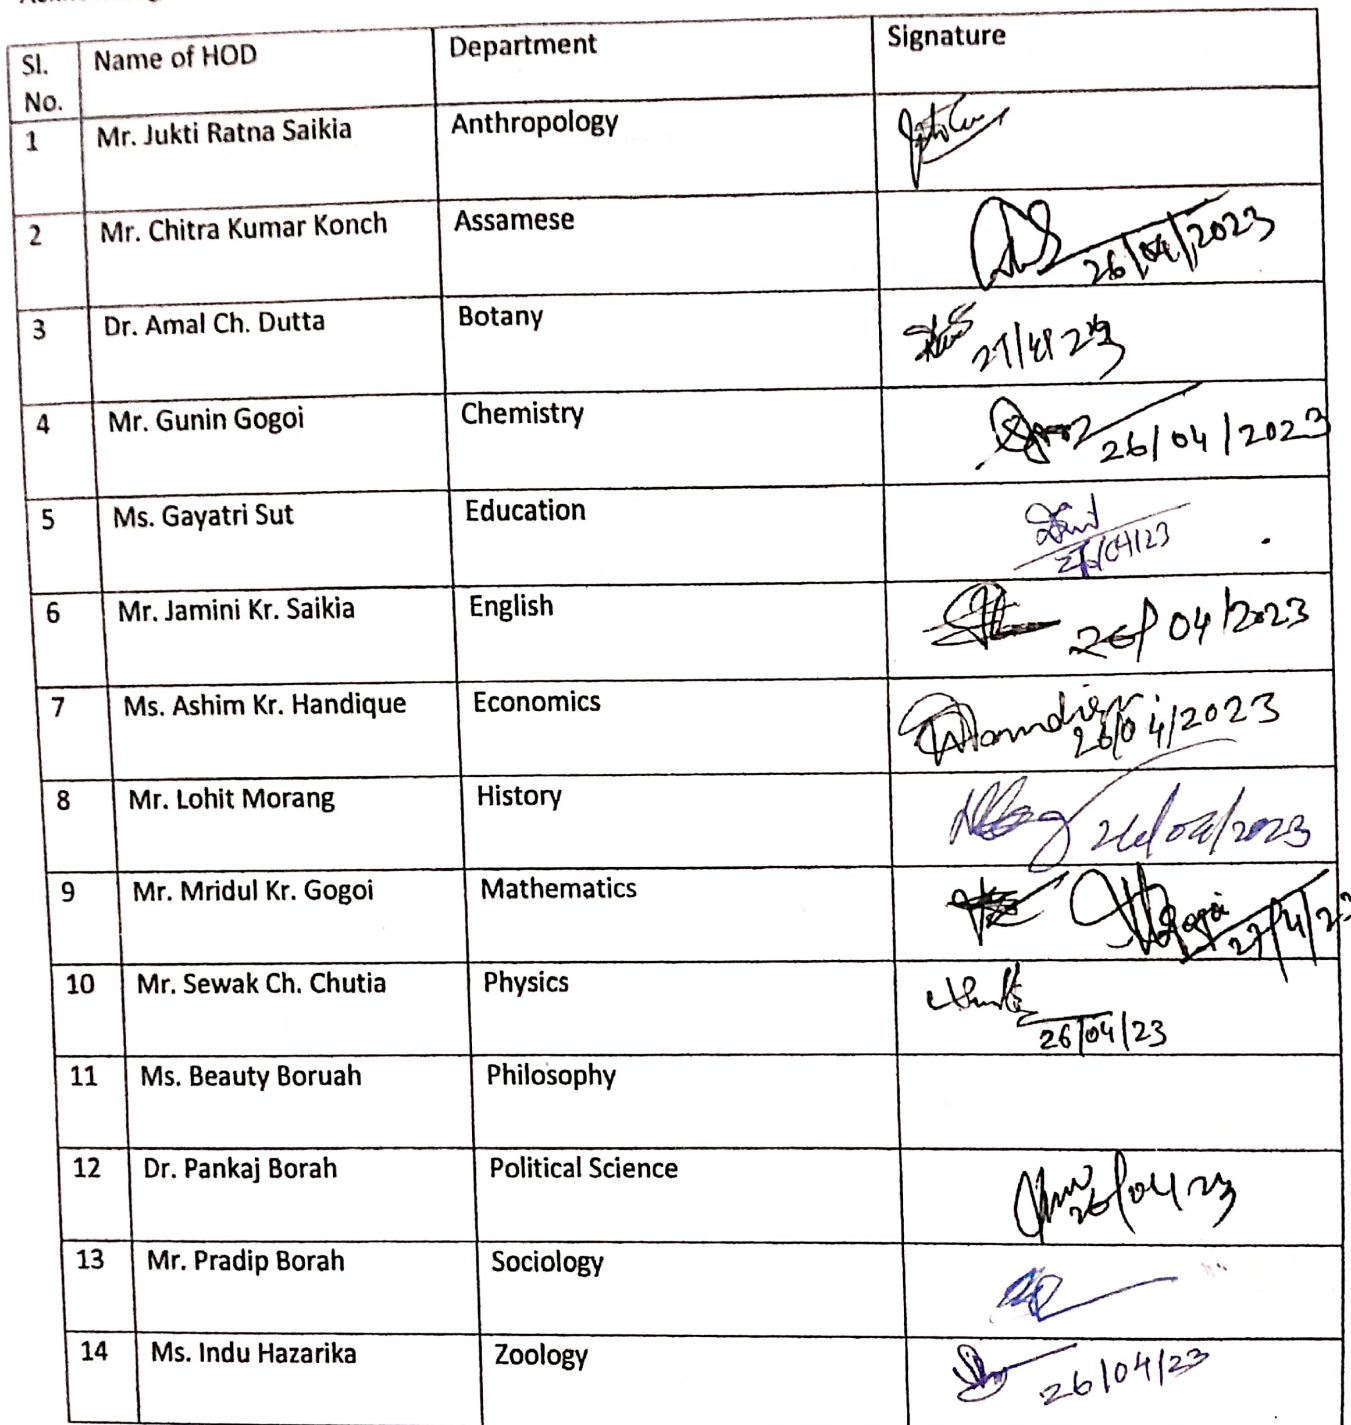 Sl. No. Name of HOD Department Signature
1 Mr. Jukti Ratna Saikia Anthropology
2 Mr. Chitra Kumar Konch Assamese 26/04/2023
3 Dr. Amal Ch. Dutta Botany
4 Mr. Gunin Gogoi Chemistry 26/04/2023
5 Ms. Gayatri Sut Education
6 Mr. Jamini Kr. Saikia English 26/04/2023
7 Ms. Ashim Kr. Handique Economics 26/04/2023
8 Mr. Lohit Morang History 26/04/2023
9 Mr. Mridul Kr. Gogoi Mathematics Gogoi
10 Mr. Sewak Ch. Chutia Physics 26/04/23
11 Ms. Beauty Boruah Philosophy
12 Dr. Pankaj Borah Political Science 26/04/23
13 Mr. Pradip Borah Sociology
14 Ms. Indu Hazarika Zoology 26/04/23